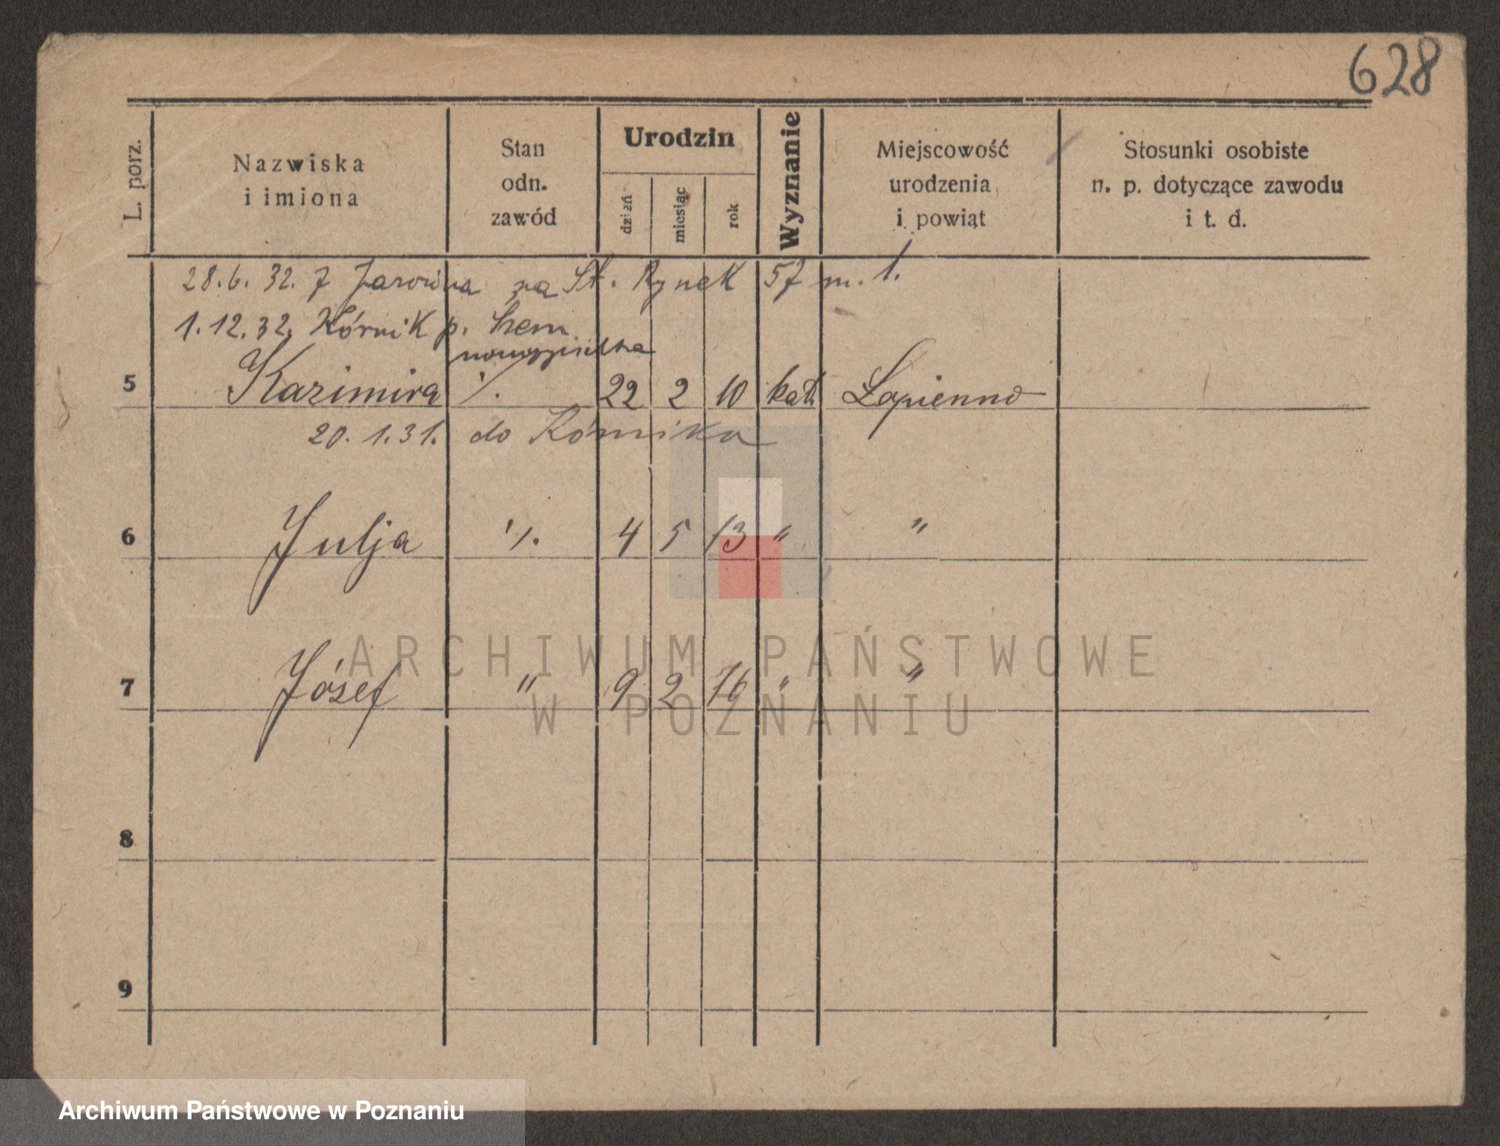 628
L. porz.
Nazwiska
i imiona
Stan
odn.
zawód
Urodzin
dzień
miesiąc
rok
Wyznanie
Miejscowość
urodzenia
i powiąt
Stosunki osobiste
n. p. dotyczące zawodu
i t. d.
28.6.32. z na St. Rynek 57 m. 1.
1.12.32. Kórnik p.
5 Kazimira ·/. 22 2 10 kat. Łopienno
20.1.31. do Kórnika
6 Julja ·/. 4 5 13 " "
7 Józef " 9 2 16 " "
8
9
ARCHIWUM PAŃSTWOWE
W POZNANIU
Archiwum Państwowe w Poznaniu